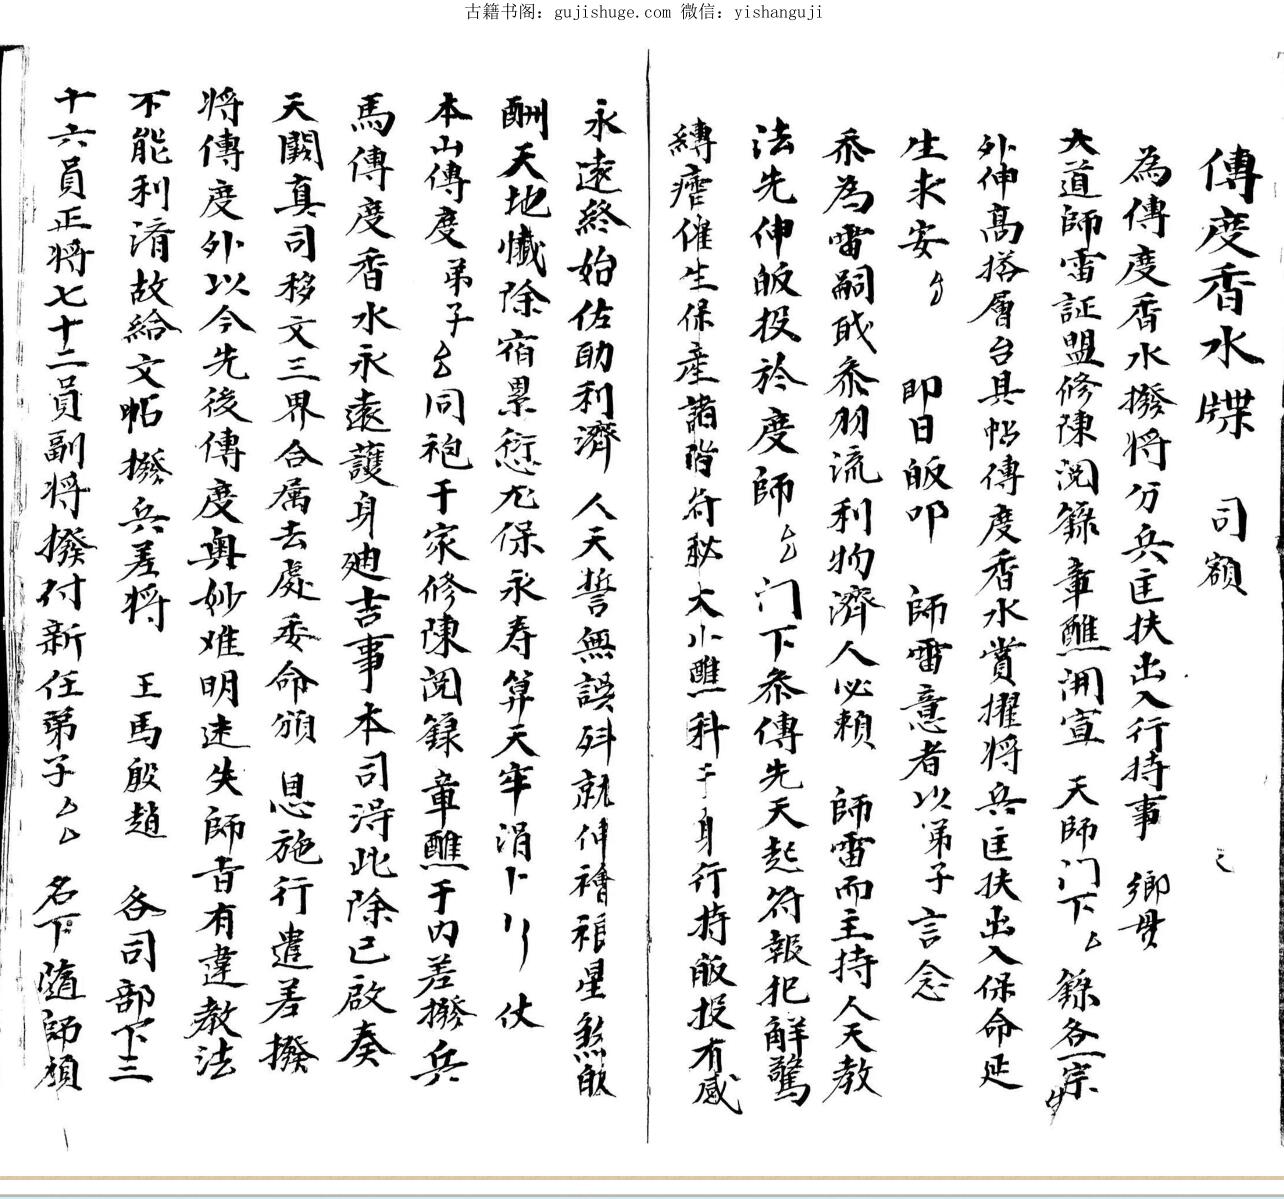 古籍书阁：gujishuge.com 微信：yishanguji
傳度香水牒 司額
為傳度香水撥將分兵匡扶出入行持事 鄉貫
大道師雷証盟修陳閱籙章醮開宣 天師门下厶籙各一宗
外伸高搭層台具帖傳度香水賞擢將兵匡扶出入保命延
生求安 即日皈叩 師雷意者以弟子言念
忝為雷嗣戝忝羽流利物濟人必賴 師雷而主持人天教
法先伸皈投於度師厶门下叅傳先天起符報犯解驚
縛瘧催生保產諸階符秘大小醮科于身行持皈投有感
永遠終始佐助利濟 人天誓無誤 就伸禬禳星煞皈
酬天地懺除宿累愆尤保永寿算天牢涓卜 仗
本山傳度弟子厶同袍于家修陳閱籙章醮于內差撥兵
馬傳度香水永遠護身迪吉事本司淂此除已啟奏
天闕真司移文三界合属去處委命頒 恩施行遣差撥
將傳度外以今先後傳度奥妙难明迷失師旨有違教法
不能利濟故給文帖撥兵差將 王馬殷趙 各司部下三
十六員正將七十二員副將撥付新任弟子厶厶 名下隨師願